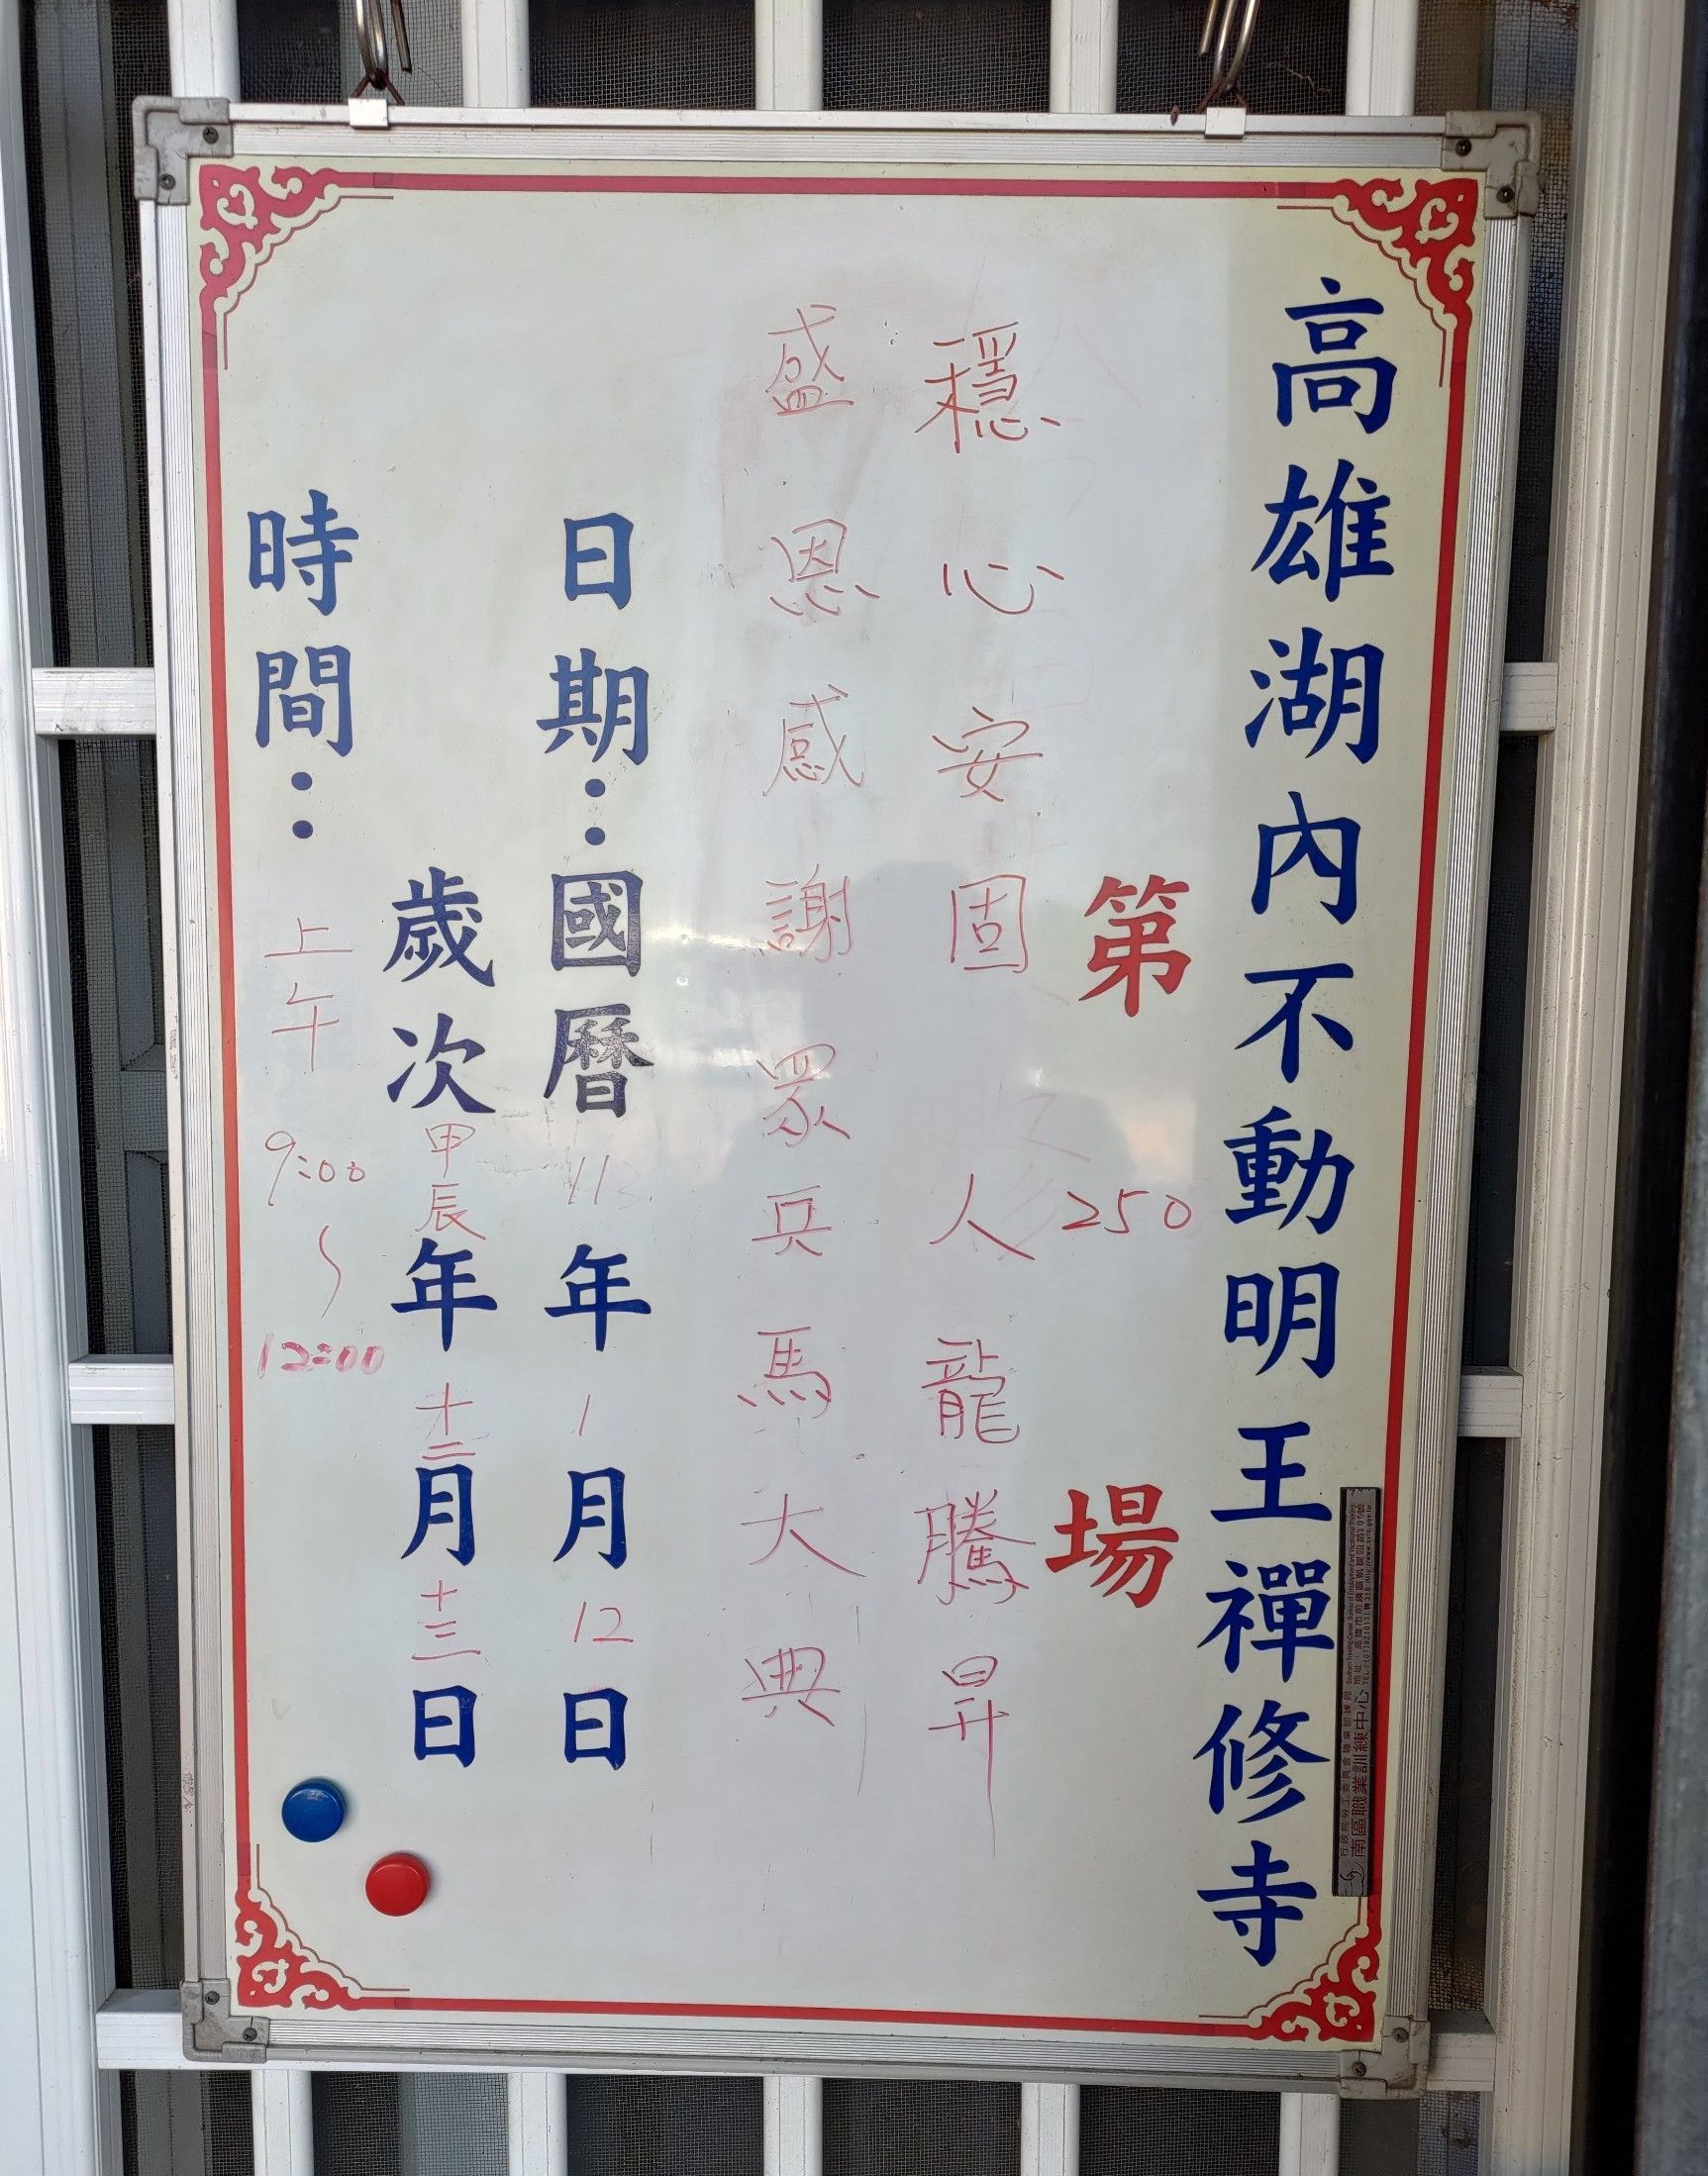 高雄湖內不動明王禪修寺
第250場
穩心安固人龍騰昇
盛恩感謝眾兵馬大典
日期：國曆113年1月12日
歲次甲辰年十二月十三日
時間：上午9:00~12:00
南區職業訓練中心